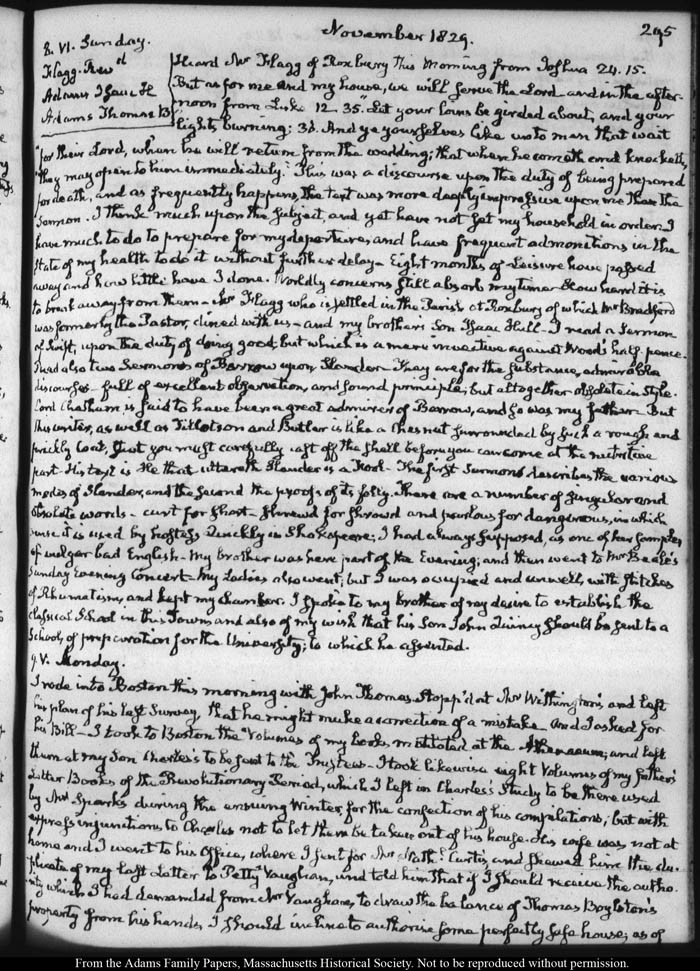 November 1829.
295
8. VI. Sunday.
Flagg. Revd
Adams Isaac H
Adams Thomas B
Heard Mr Flagg of Roxbury this Morning from Joshua 24. 15.
But as for me and my house, we will serve the Lord and in the after-
noon from Luke 12 35. Let your loins be girded about, and your
lights burning; 36. And ye yourselves like unto men that wait
"for their Lord, when he will return from the wedding; that when he cometh and knocketh,
"they may open to him immediately." This was a discourse upon the duty of being prepared
for death, and as frequently happens, the text was more deeply impressive upon me than the
Sermon. I think much upon the subject, and yet have not set my household in order. I
have much to do to prepare for my departure, and have frequent admonitions in the
state of my health to do it without further delay. Eight months of Leisure have passed
away and how little have I done. Worldly concerns still absorb my time. How hard it is
to break away from them. Mr Flagg who is settled in the Parish at Roxbury of which Mr Bradford
was formerly the Pastor, dined with us. and my brother's Son Isaac Hull. I read a Sermon
of Swift, upon the duty of doing good; but which is a mere invective against Wood's half-pence.
I read also two Sermons of Barrow upon Slander. They are for the substance, admirable
discourses full of excellent observation, and sound principle; but altogether obsolete in style.
Lord Chatham is said to have been a great admirer of Barrow, and so was my father. But
this writer, as well as Tillotson and Butler is like a Chesnut surrounded by such a rough and
prickly coat, that you must carefully cast off the shell before you can come at the nutritive
part. His text is He that uttereth Slander is a Fool. The first Sermon describes the various
modes of Slander, and the second the proofs of its folly. There are a number of singular and
obsolete words. curt for short. shrewd for shrowd and parlous for dangerous, in which
sense it is used by hostess Quickly in Shakspeare; I had always supposed, as one of her samples
of vulgar bad English. My brother was here part of the Evening; and then went to Mr Beale's
Sunday Evening Concert. My Ladies also went; but I was occupied and unwell, with stitches
of Rhumatism, and kept my chamber. I spoke to my brother of my desire to establish the
classical School in this Town and also of my wish that his Son John Quincy should be sent to a
School, of preparation for the University; to which he assented.
9. V. Monday.
I rode into Boston this morning with John Thomas. Stopp'd at Mr Withington's, and left
his plan of his last Survey, that he might make a correction of a mistake. And I asked for
his Bill. I took to Boston the Volumes of my books, at the Athenaeum; and left
them at my Son Charles's to be sent to the Trustees. I took likewise eight Volumes of my father's
Letter Books of the Revolutionary Period, which I left in Charles's Study to be there used
by Mr Sparks during the ensuing Winter, for the confection of his compilations; but with
express injunctions to Charles not to let them be taken out of his house. His wife was not at
home and I went to his Office, where I sent for Mr Nathl. Curtis, and shewed him the du-
plicate of my last Letter to Petty Vaughan, and told him that if I should receive the autho-
rity which I had demanded from Mr Vaughan, to draw the balance of Thomas Boylston's
property from his hands, I should incline to authorise some perfectly safe house, as of
From the Adams Family Papers, Massachusetts Historical Society. Not to be reproduced without permission.